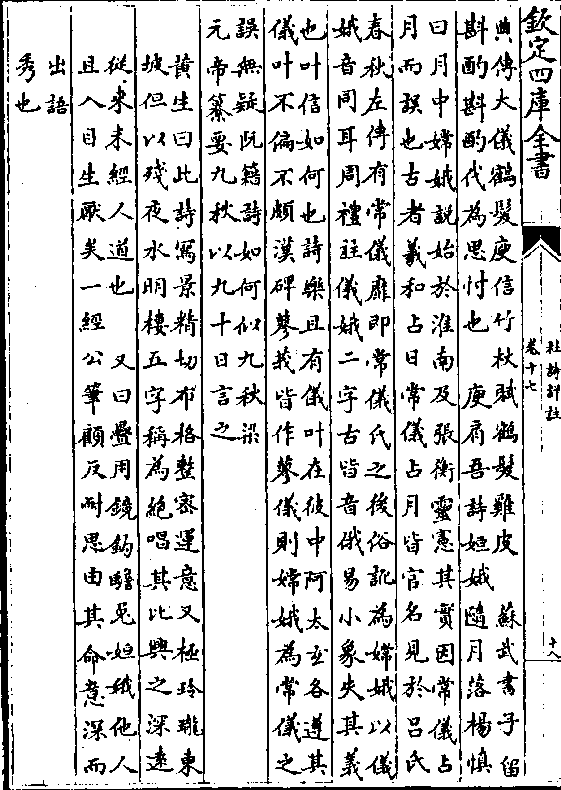 欽定四庫全書
杜詩詳註
卷十七
十八
典傳大儀鶴髮庾信竹杖賦鶴髮雞皮　蘇武書子留
斟酌斟酌代為思忖也　庾肩吾詩姮娥隨月落楊慎
曰月中嫦娥說始於淮南及張衡靈憲其實因常儀占
月而誤也古者羲和占日常儀占月皆官名見於呂氏
春秋左傳有常儀靡即常儀氏之後俗訛為嫦娥以儀
娥音同耳周禮註儀娥二字古皆音俄易小象失其義
也叶信如何也詩樂且有儀叶在彼中阿太玄各遵其
儀叶不偏不頗漢碑蓼莪皆作蓼儀則嫦娥為常儀之
誤無疑阮籍詩如何似九秋梁
元帝纂要九秋以九十日言之
黄生曰此詩寫景精切布格整密運意又極玲瓏東
坡但以殘夜水明樓五字稱為絶唱其比興之深遠
從來未經人道也　又曰疊用鏡鈎蟾兎姮娥他人
且入目生厭矣一經公筆顧反耐思由其命意深而
出語
秀也